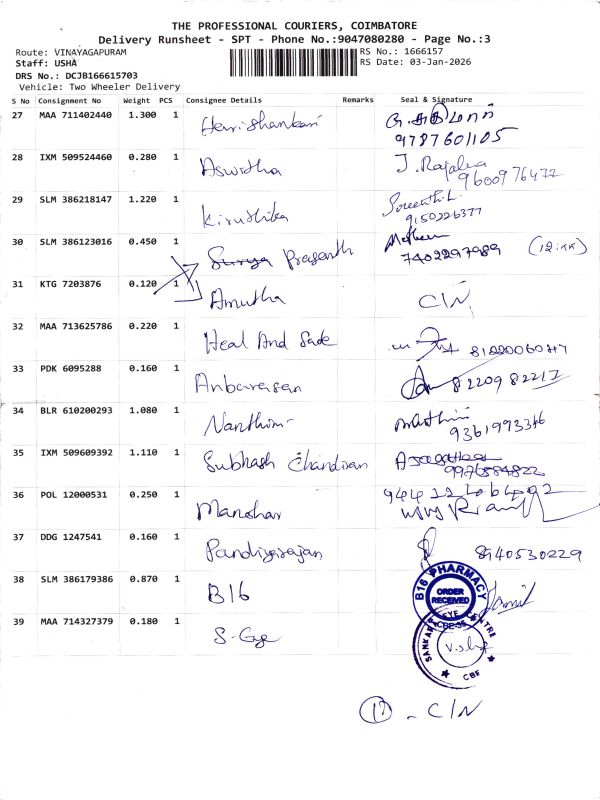 THE PROFESSIONAL COURIERS, COIMBATORE
Delivery Runsheet - SPT - Phone No.:9047080280 - Page No.:3
Route: VINAYAGAPURAM
Staff: USHA
DRS No.: DCJB166615703
Vehicle: Two Wheeler Delivery
RS No.: 1666157
RS Date: 03-Jan-2026
S No Consignment No Weight PCS Consignee Details Remarks Seal & Signature
27 MAA 711402440 1.300 1 Harishankari
9787601105
28 IXM 509524460 0.280 1 Aswitha J. Rajalea
9600976477
29 SLM 386218147 1.220 1 Kiruthika Sreenthi.L
9150226377
30 SLM 386123016 0.450 1 Surya Prasanth
7402297989
31 KTG 7203876 0.120 1 Amutha C/N
32 MAA 713625786 0.220 1 Heal And Sade
33 PDK 6095288 0.160 1 Anbarasan 8220982217
34 BLR 610200293 1.080 1 Nanthini
9361993346
35 IXM 509609392 1.110 1 Subhash Chandiran
9976584822
36 POL 12000531 0.250 1 Manohar
37 DDG 1247541 0.160 1 Pandiyarajan 8940530229
38 SLM 386179386 0.870 1 B16
B16 PHARMACY
ORDER RECEIVED
CBE-35
39 MAA 714327379 0.180 1 S-Eye
SANKARA EYE CENTRE
CBE
17 - C/N